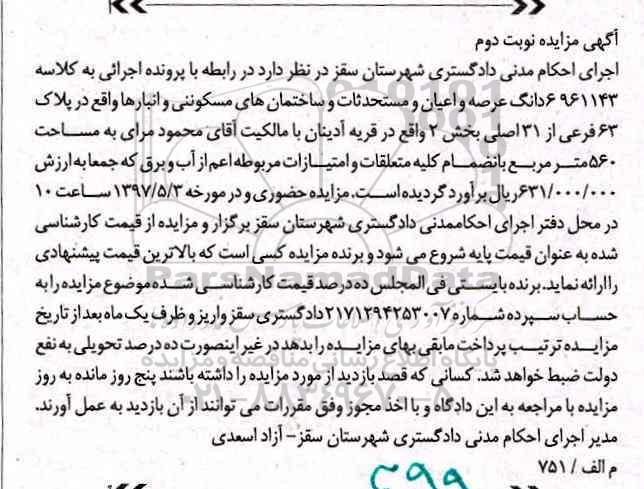 آگهی مزایده نوبت دوم
اجرای احکام مدنی دادگستری شهرستان سقز در نظر دارد در رابطه با پرونده اجرائی به کلاسه
۹۶۱۱۴۳ ۶دانگ عرصه و اعیان و مستحدثات و ساختمان های مسکونی و انبارها واقع در پلاک
۶۳ فرعی از ۳۱ اصلی بخش ۲ واقع در قریه آدینان با مالکیت آقای محمود مرای به مساحت
۵۶۰ متر مربع بانضمام کلیه متعلقات و امتیازات مربوطه اعم از آب و برق که جمعا به ارزش
۶۳۱/۰۰۰/۰۰۰ ریال برآورد گردیده است. مزایده حضوری و در مورخه ۱۳۹۷/۵/۳ ساعت ۱۰
در محل دفتر اجرای احکام‌مدنی دادگستری شهرستان سقز برگزار و مزایده از قیمت کارشناسی
شده به عنوان قیمت پایه شروع می شود و برنده مزایده کسی است که بالاترین قیمت پیشنهادی
را ارائه نماید. برنده بایستی فی المجلس ده درصد قیمت کارشناسی شده موضوع مزایده را به
حساب سپرده شماره ۲۱۷۱۲۹۴۲۵۳۰۰۷ دادگستری سقز واریز و ظرف یک ماه بعد از تاریخ
مزایده ترتیب پرداخت مابقی بهای مزایده را بدهد در غیر اینصورت ده درصد تحویلی به نفع
دولت ضبط خواهد شد. کسانی که قصد بازدید از مورد مزایده را داشته باشند پنج روز مانده به روز
مزایده با مراجعه به این دادگاه و با اخذ مجوز وفق مقررات می توانند از آن بازدید به عمل آورند.
مدیر اجرای احکام مدنی دادگستری شهرستان سقز- آزاد اسعدی
م الف / ۷۵۱
ParsNamadData
پایگاه اطلاع رسانی مناقصه و مزایده
۰۲۱-۸۸۳۴۹۶۷۰-۵